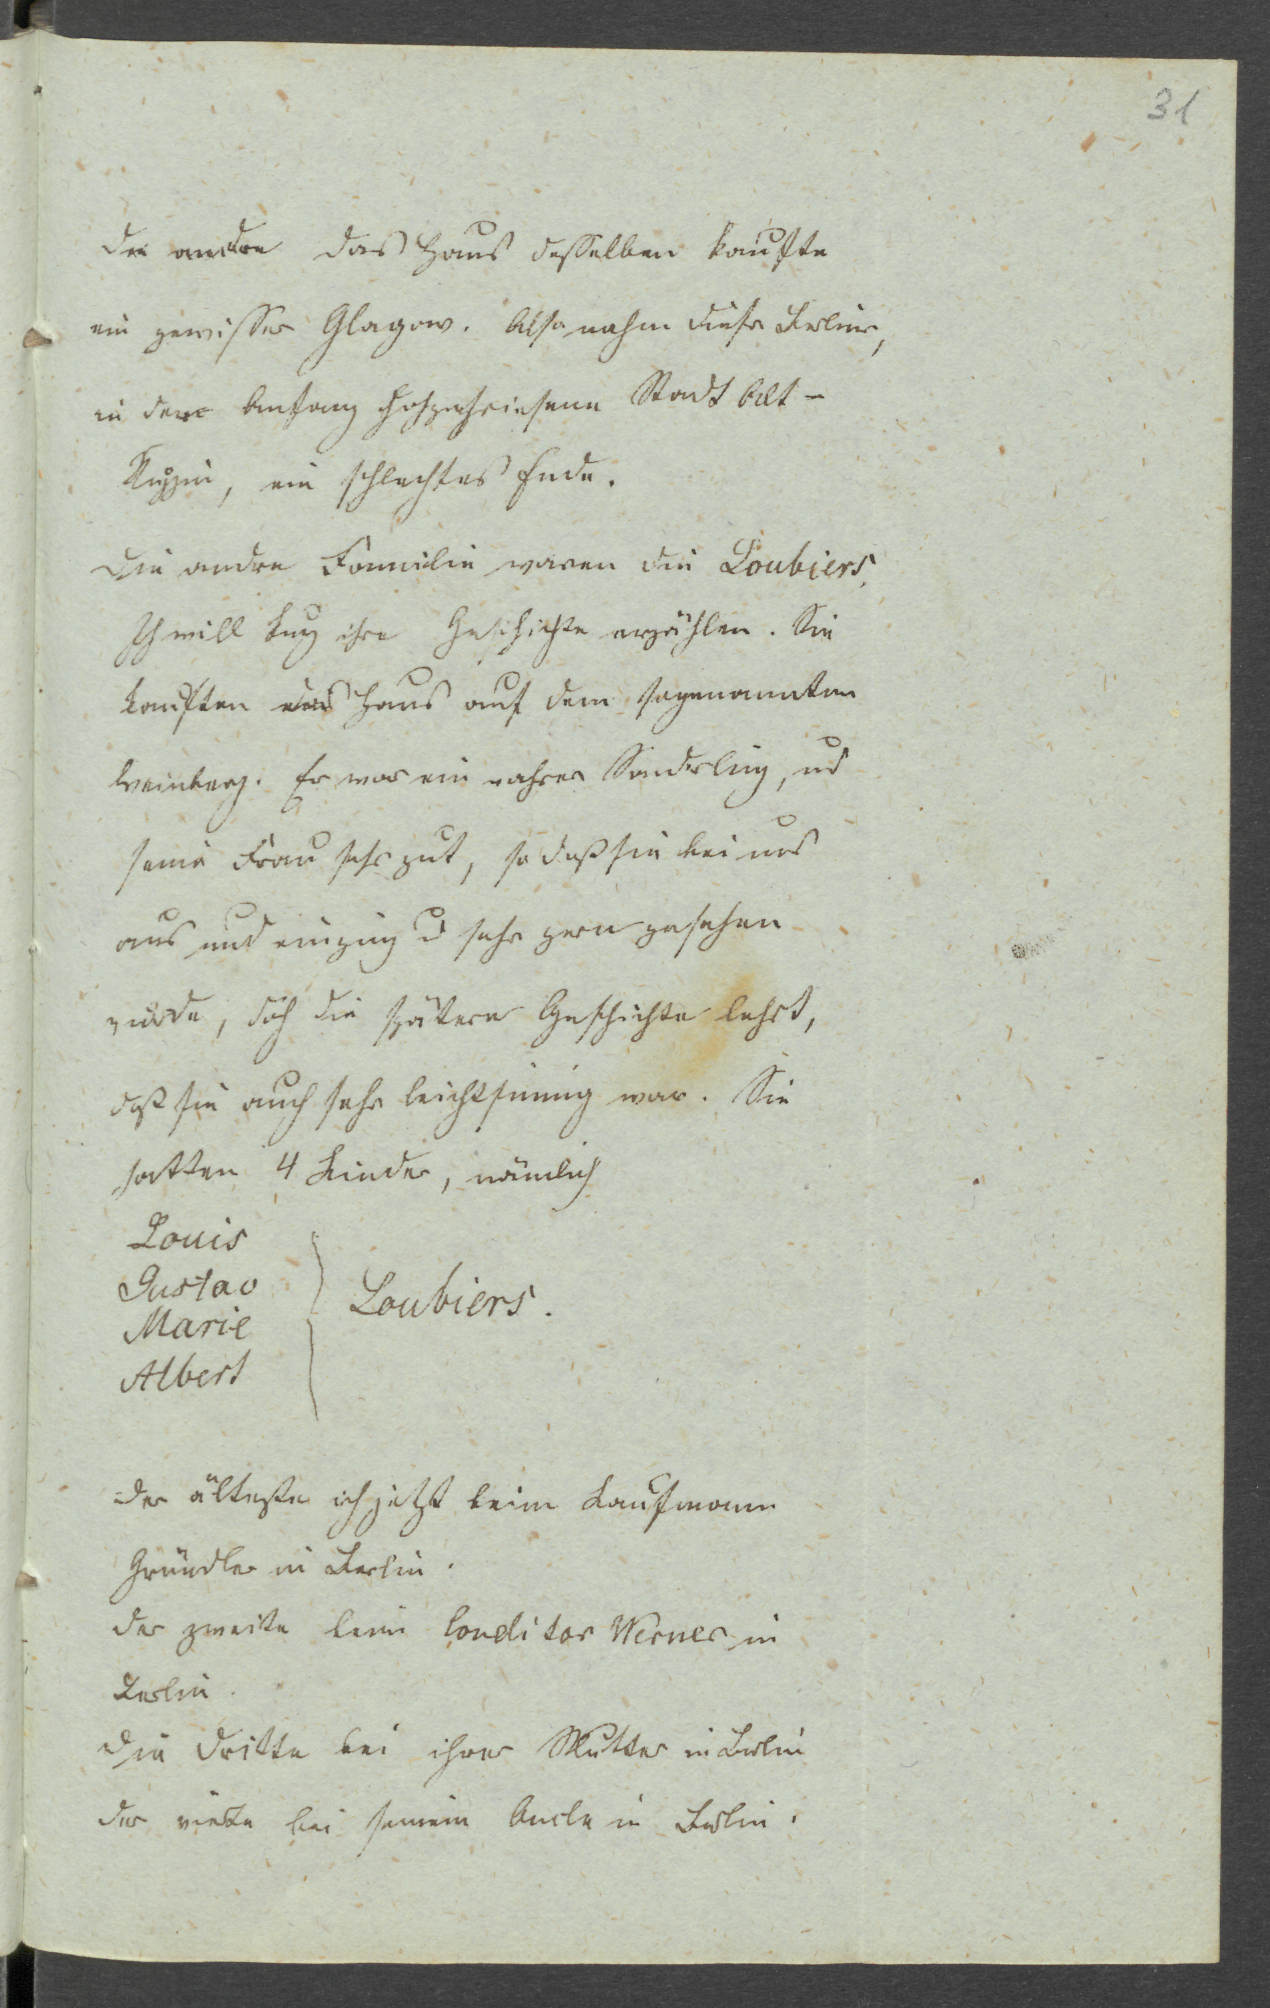 31
Die andre das Haus desselben kaufte
ein gewisser Glagow. Also nahm diese Berliner,
in der Anfang hochgepriesenen Stadt Alt-
Ruppin, ein schlechtes Ende.
Die andre Familie waren die Loubiers.
Ich will kurz ihre Geschichte erzählen. Sie
kauften das Haus auf dem sogenannten
Weinberg. Er war ein wahrer Sonderling, und
seine Frau sehr gut, so daß sie bei uns
aus und einging u sehr gern gesehen
wurde, doch die spätere Geschichte lehrt,
daß sie auch sehr leichtsinnig war. Sie
hatten 4 Kinder, nämlich
Louis
Gustav
Marie
Albert
Loubiers.
Der älteste ist jetzt beim Kaufmann
Gründler in Berlin.
Der zweite beim Conditor Werner in
Berlin.
Die dritte bei ihrer Mutter in Berlin
Der vierte bei seinem Oncle in Berlin.